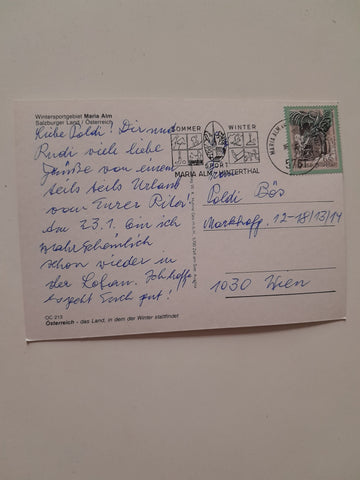 Wintersportgebiet Maria Alm
Salzburger Land / Österreich
Liebe Poldi! Dir und
Rudi viele liebe
Grüße von einem
teils teils Urlaub
von Eurer Peter!
Am 23.1. bin ich
wahrscheinlich
schon wieder in
der Lobau. Ich hoffe
es geht Euch gut!
OC-213
Österreich - das Land, in dem der Winter stattfindet
SOMMER WINTER
SPORT
MARIA ALM HINTERTHAL
MARIA ALM
5761
Poldi Bös
Markhofg. 12-18/13/14
1030 Wien